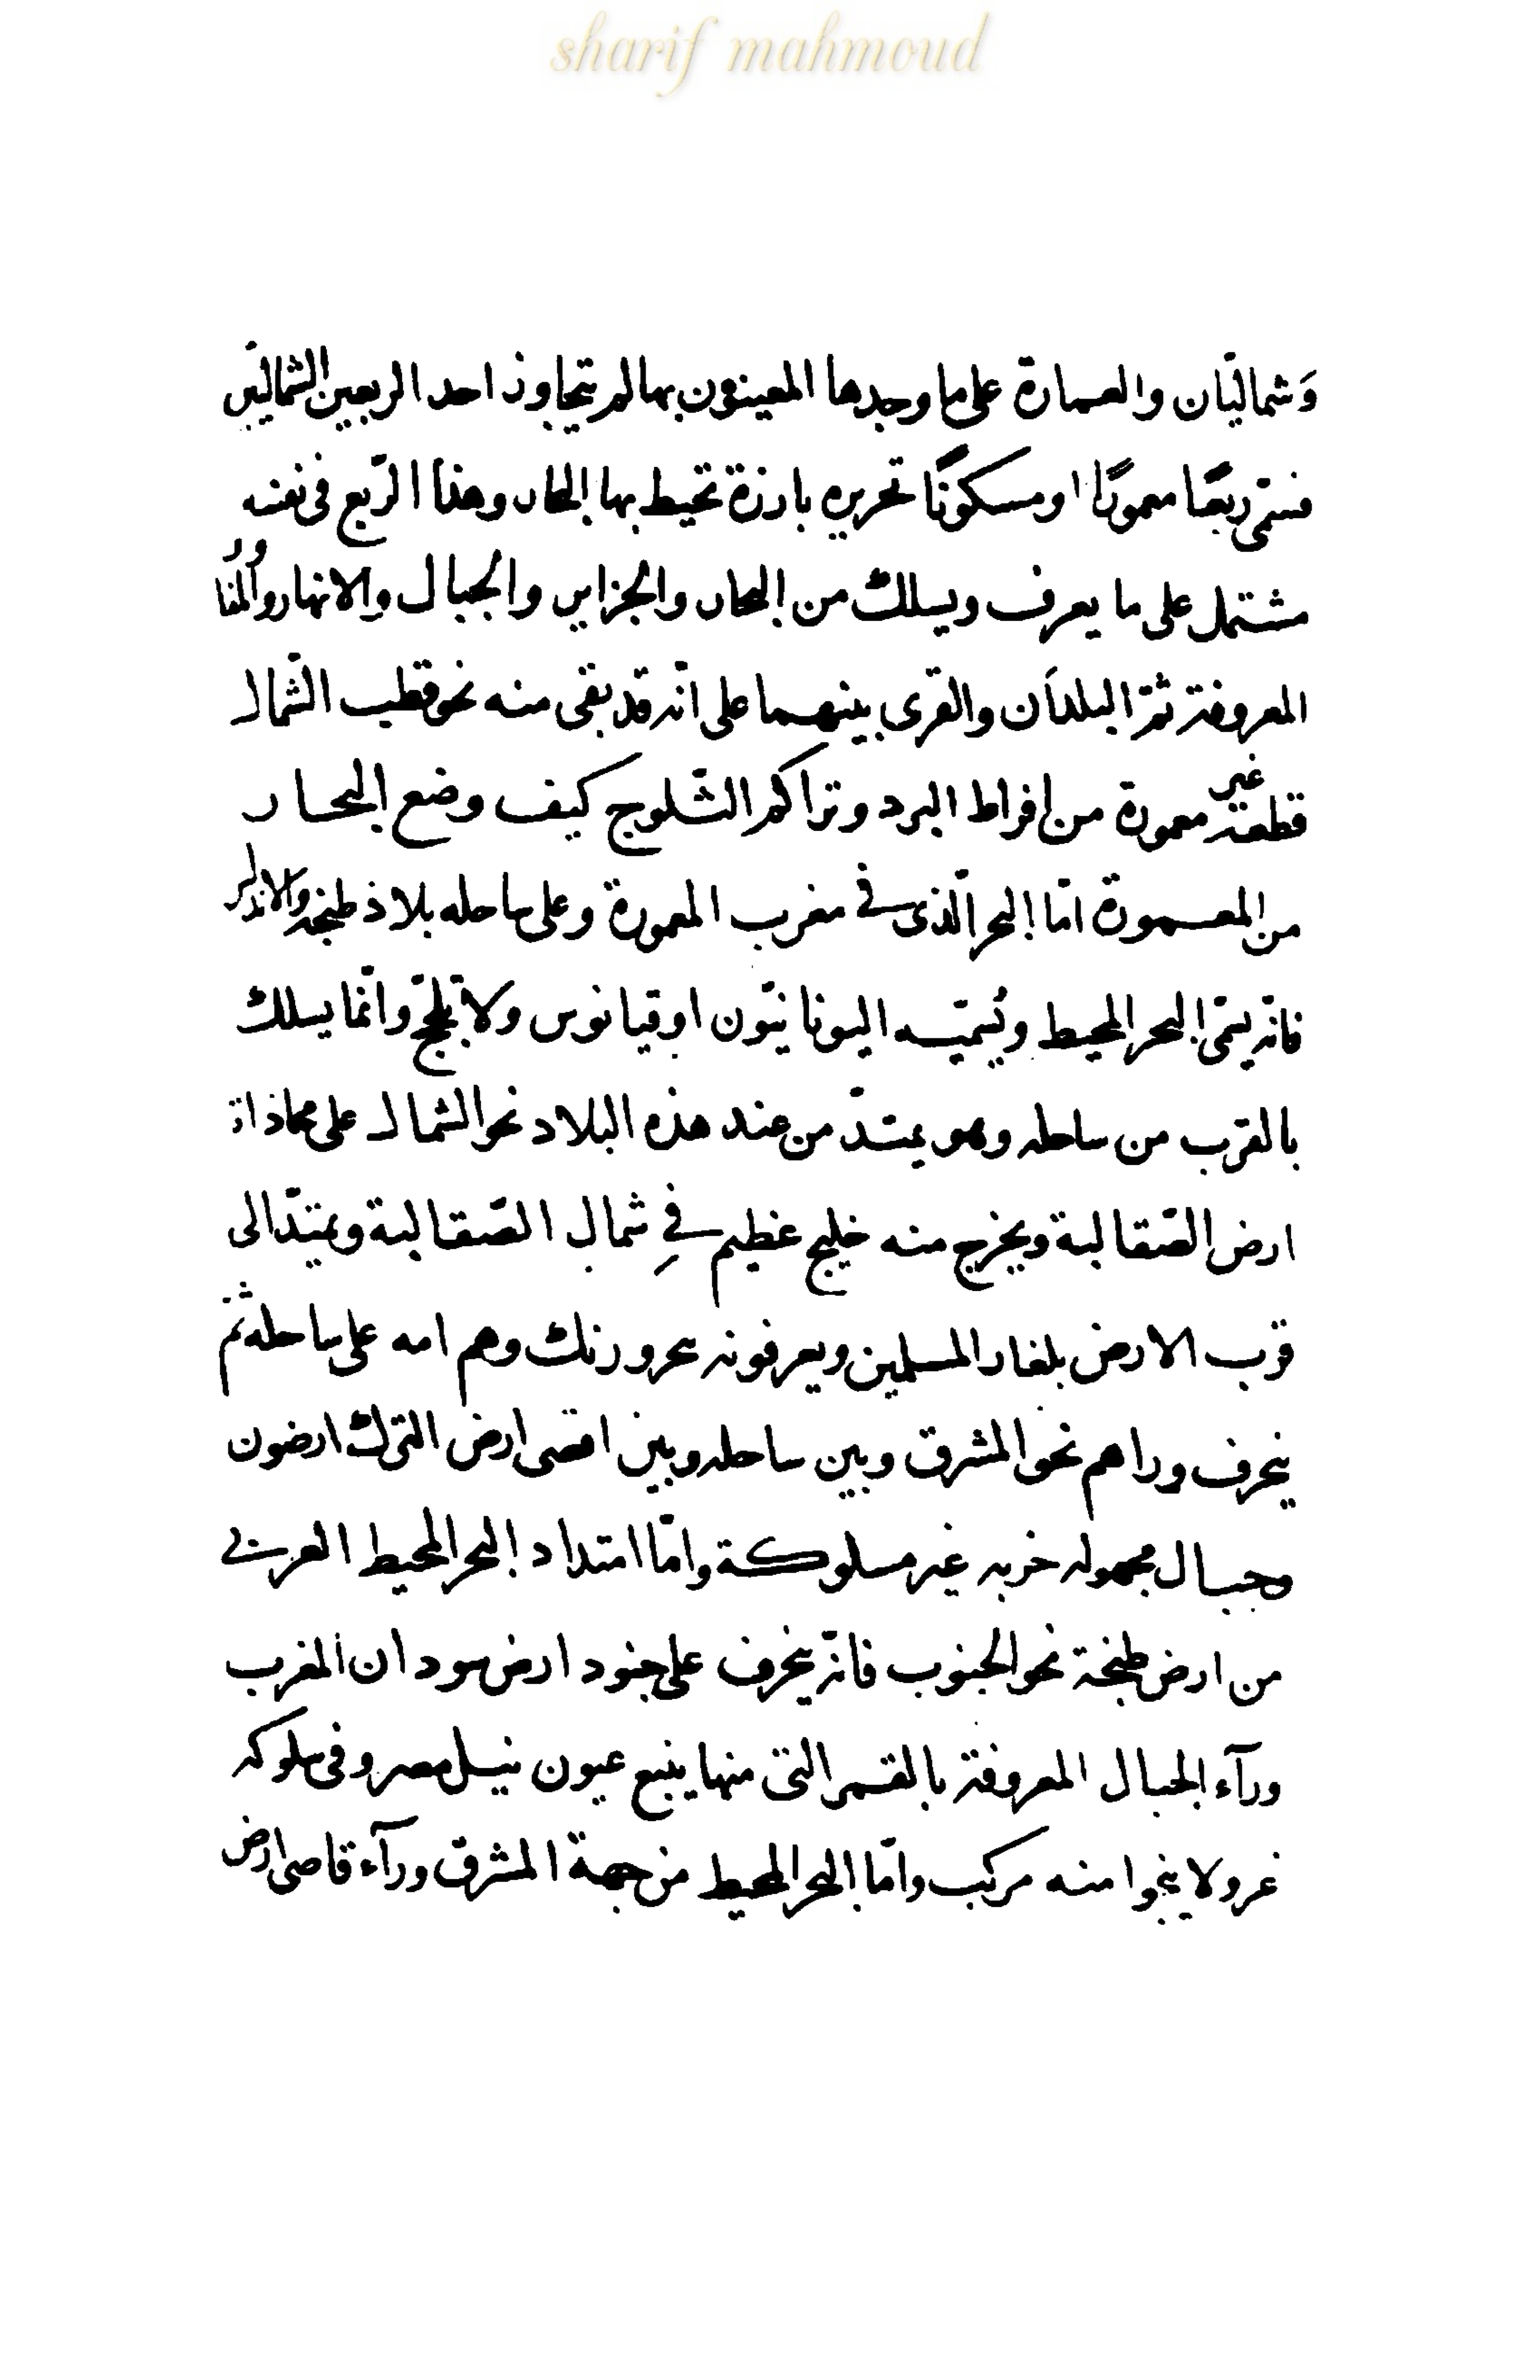 sharif mahmoud
وَشماليّان والعمارة على ما وجدها المعينون بها لم يتجاوز احد الربعين الشماليّين
فسمّى ربعًا معمورًا او مسكونًا تحريره بارزة تحيط بها البحار وهذا الرّبع فى نفسه
مشتمل على ما يعرف ويسلك من البحار والجزاير والجبال والانهار والمفاوز
المعروفة ثمّ البلدَان والقرى بينهما على انّه قد بقى منه نحو قطب الشّمال
قطعة غير معمورة من افراط البرد وتراكم الثّلوج كيف وضع البحار
من المعمورة امّا البحر الّذى فى مغرب المعمورة وعلى ساحله بلاد طنجه والاندلس
فانّه يسمّى البحر المحيط ويُسمّيه اليونانيّون اوقيانوس ولا يلجّج وانّما يسلك
بالقرب من ساحله وهو يمتدّ من عند هذه البلاد نحو الشمال على محاذاة
ارض الصّقالبة ويخرج منه خليج عظيم فِى شمال الصّقالبة ويمتدّ الى
قرب الارض بلغار المسلمين ويعرفونه بحر ورنك وهم امه على ساحله ثمّ
ينحرف وراهم نحو المشرق وبين ساحله وبين اقصى ارض الترك ارضون
وجبال مجهوله خربه غير مسلوكة وامّا امتداد البحر المحيط الغربى
من ارض طنجة نحو الجنوب فانّه ينحرف على جنود ارض سودان المغرب
ورآء الجبال المعروفة بالقمر التى منها ينبع عيون نيل مصر وفى سلوكه
غرر ولا ينجوا منه مركب وامّا البحر المحيط من جهة المشرق ورآء قاصى ارض